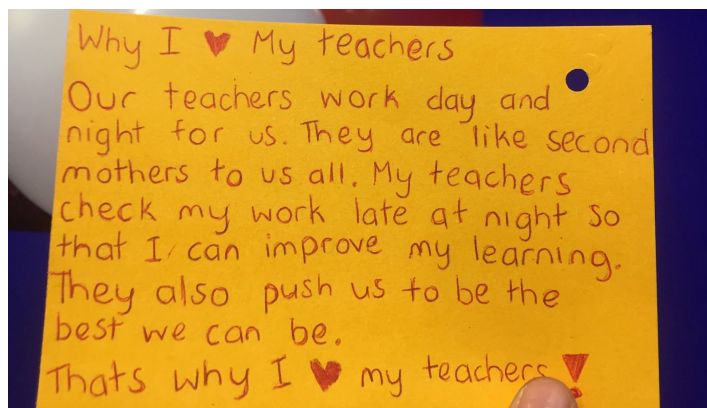 Why I ♥ My teachers
Our teachers work day and
night for us. They are like second
mothers to us all. My teachers
check my work late at night so
that I can improve my learning.
They also push us to be the
best we can be.
Thats why I ♥ my teachers!